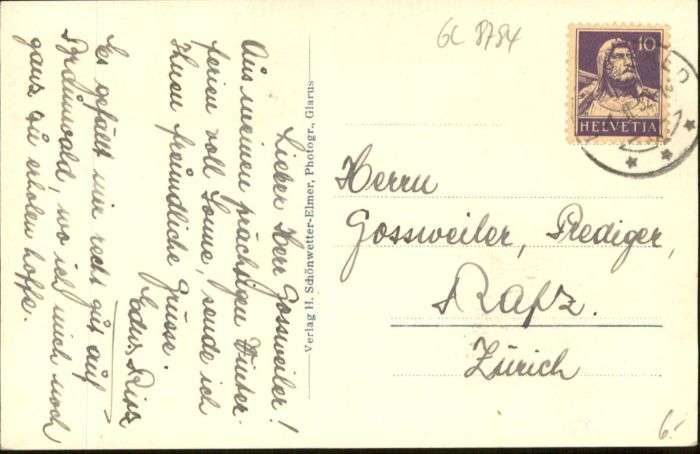 Lieber Herr Gossweiler!
Aus meinen prächtigen Winter-
ferien voll Sonne, sende ich
Ihnen freundliche Grüsse.
Es gefällt mir recht gut auf
wo ich mich noch
ganz zu erholen hoffe.
Verlag H. Schönwetter-Elmer, Photogr., Glarus
GC 8784
10
HELVETIA
Herrn
Gossweiler, Prediger,
Rafz.
Zürich
6.-